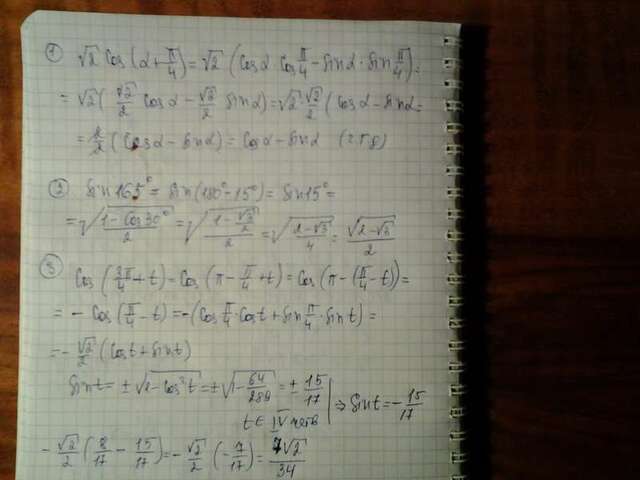 1) √2 cos(α+π/4)=√2 (cosα cos π/4 - sinα · sin π/4)=
= √2 (√2/2 cosα - √2/2 sinα)=√2·√2/2 (cosα - sinα=
= 2/2 (cosα - sinα)= cosα - sinα
2) sin165°= sin(180°-15°)= sin15°=
= √((1-cos30°)/2) = √((1-√3/2)/2) = √((2-√3)/4) = √(2-√3)/2
3) cos(3π/4+t)=cos(π-π/4+t)=cos(π-(π/4-t))=
= - cos(π/4-t)=-(cos π/4·cost+sin π/4·sint)=
= -√2/2 (cost+sint)
sint= ±√(1-cos²t)=±√(1-64/289)=±15/17 ⇒ sint=-15/17
t∈ IV четв
-√2/2 (8/17 - 15/17)=-√2/2 (-7/17)=7√2/34